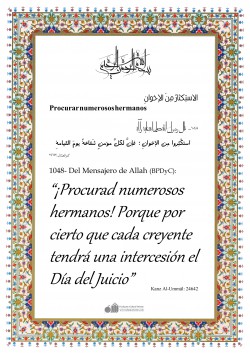 الاستكثار من الإخوان
Procurar numerosos hermanos
استكثروا من الإخوان ؛ فإن لكل مؤمن شفاعة يوم القيامة
1048- Del Mensajero de Allah (BPDyC):
“¡Procurad numerosos
hermanos! Porque por
cierto que cada creyente
tendrá una intercesión el
Día del Juicio”
Kanz Al-Ummâl: 24642